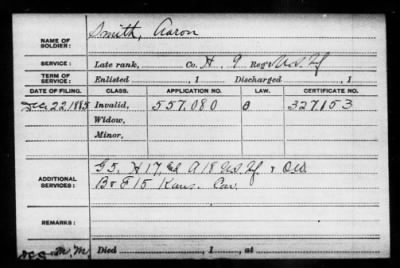 NAME OF SOLDIER: Smith, Aaron
SERVICE: Late rank, Co. H. 9 Reg't U.S. Inf
TERM OF SERVICE: Enlisted , 1 Discharged , 1
DATE OF FILING. CLASS. APPLICATION NO. LAW. CERTIFICATE NO.
Dec. 22, 1885 Invalid, 557.080 327.153
Widow,
Minor,
ADDITIONAL SERVICES: G 5. H 17. A 18 U.S. Inf &
B & F 15 Kans. Cav.
REMARKS:
Died , 1 , at